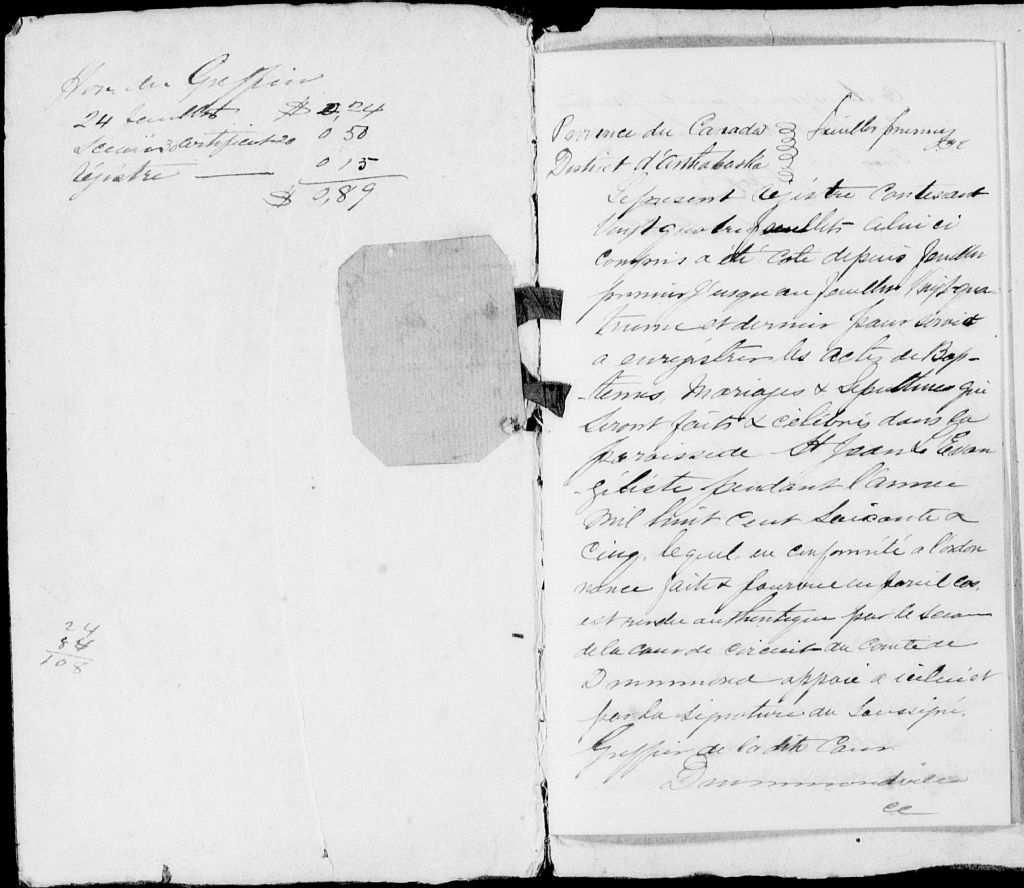 Hon. du Greffier
24 feuillets $ 0,24
Sceau & certificat 0 50
Régistre — 0 15
$ 0,89
24
84
108
Province du Canada
feuillet premier
District d'Arthabaska
Le présent Régistre contenant
vingt quatre feuillets celui ci
compris a été coté depuis feuillet
premier jusqu'au feuillet vingt qua
trieme et dernier pour servir
a enrégistrer les actes de Bap-
-temes, Mariages & Sepultures qui
seront faits & célébrés dans la
paroisse de St Jean L'Evan
-géliste pendant l'année
mil huit cent soixante &
cinq, lequel, en conformité a l'ordon
nance faite & pourvue en pareil cas,
est rendu authentique par le sceau
de la cour de circuit du comté de
Drummond apposé a icelui et
par la signature du soussigné,
Greffier de la dite Cour.
Drummondville
ce